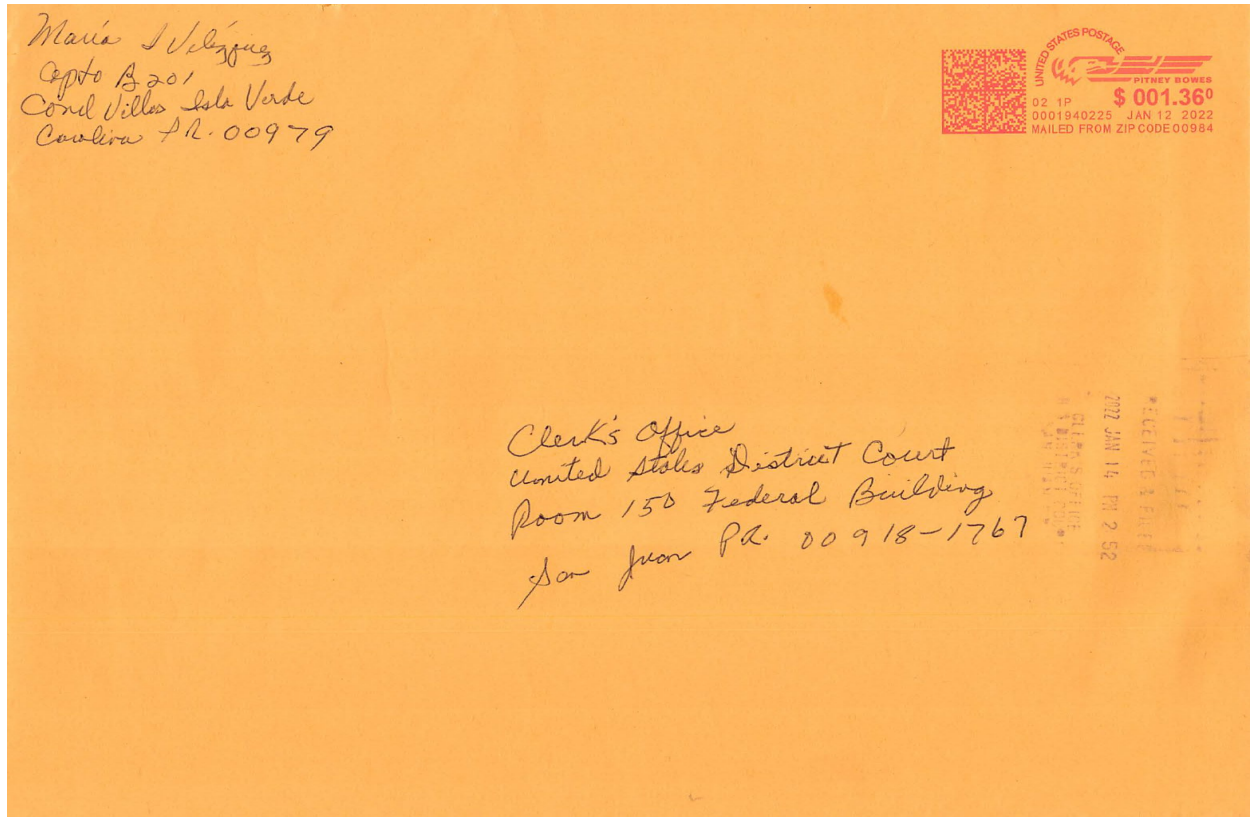 María I Velázquez
Apto B 201
Cond Villas Isla Verde
Carolina PR. 00979
UNITED STATES POSTAGE
PITNEY BOWES
02 1P $ 001.36⁰
0001940225 JAN 12 2022
MAILED FROM ZIP CODE 00984
Clerk's Office
United States District Court
Room 150 Federal Building
San Juan PR. 00918-1767
RECEIVED & FILED
2022 JAN 14 PM 2 52
CLERK'S OFFICE